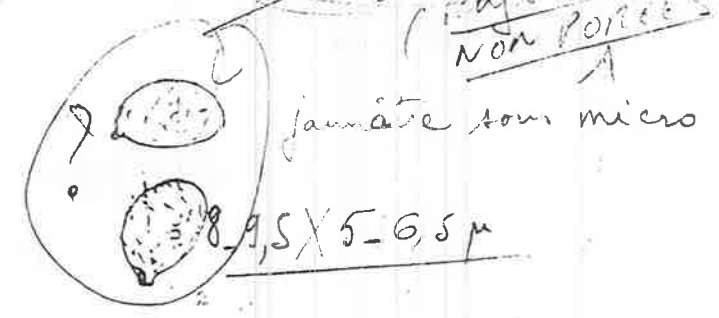 NON
?
jaunâtre sous micro
8_9,5 X 5_6,5 µ